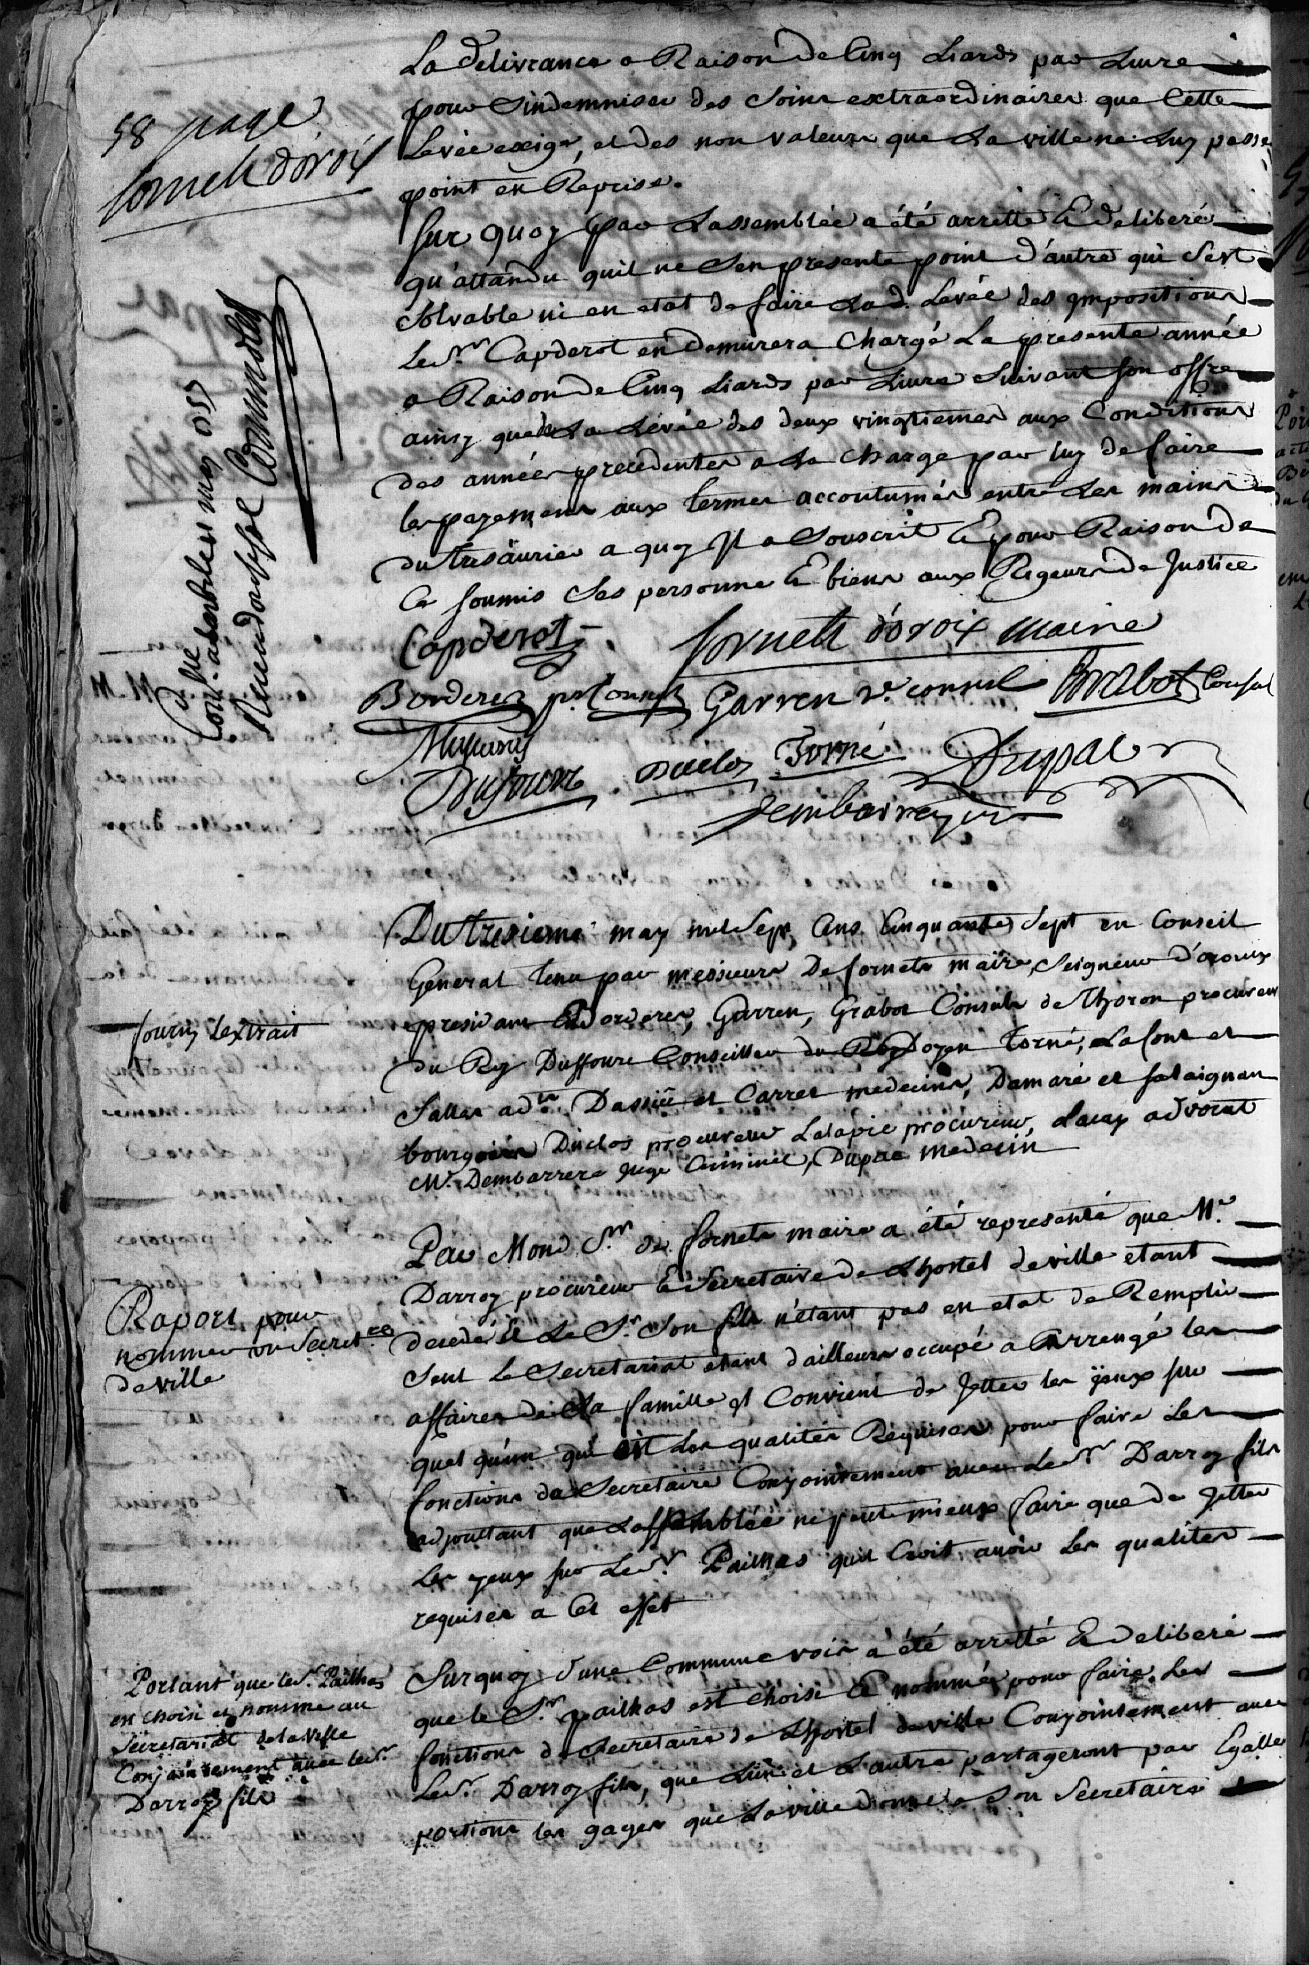 58 page
fornets d'oroix
La delivrance a Raison de Cinq Liards par Livre
pour S'indemniser des Soins extraordinaires que Cette
Levée exige, et des non valeurs que La ville ne Luy passe
point en Reprise.
Sur quoy par Lassemblée a été arretté & deliberé
qu'attandu quil ne Sen presente point d'autre qui Soit
Solvable ni en etat de faire Lad. Levée des impositions
Le Sr. Capderot en demurera Chargé La presente année
a Raison de Cinq Liards par Livre Suivant Son offre
ainsy que de La Levée des deux vingtiemes aux Conditions
des années precedentes a la charge par luy de faire
les payemens aux termes accoutumés entre les mains
du trésaurier a quoy Il a Souscrit & pour Raison de
Ce Soumis Ses personne & biens aux Rigeurs de Justice
Capderot
fornets d'oroix maire
Borderes pr. Consul
Garren 2e. consul
Grabot Consul
Dufourc
Duclos
Torné
Dupac
Dembarrere
Du tresieme may mil Sept Cens Cinquante Sept en Conseil
General tenu par messieurs De fornets maire, Seigneur d'oroix
presidant Borderes, Garren, Grabot Consuls de Thoron procureur
du Roy Duffourc Conseiller du Roy Doyen Torné, Lafont et
Salles adts. Dassieu et Carrer medecins, Damaré et Salaignan
bourgoies Duclos procureur Lalapie procureur, Lacay advocat
Mr. Dembarrere Juge Criminel, Dupac medecin
fourny Lextrait
Par Mond. Sr. de fornets maire a été representé que Me.
Darroy procureur & Secretaire de Lhostel deville etant
decedé & Le Sr. Son fils n'etant pas en etat de Remplir
Seul Le Secretariat etant d'ailleurs occupé a arrengé les
affaires de Sa famille il Convient de Jetter les yeux sur
quel qu'un qui ait Les qualites Requises pour faire Les
fonctions de Secretaire Conjointement avec Le Sr. Darroy fils
adjoutant que Lassemblée ne peut mieux faire que de Jetter
Les yeux sur Le Sr. Pailhas quil Croit avoir Les qualites
requises a Cet effet
Raport pour
nommer un Secret.re
de ville
Surquoy d'une Commune voix a été arretté & deliberé
que le Sr. pailhas est choisi & nommé pour faire Les
fonctions de Secretaire de Lhostel deville Conjointement avec
Le Sr. Darroy fils, que Lun et Lautre partageront par Egalles
portions les gages que La ville donne a Son Secretaire
Portant que le Sr. Pailhas
est choisi et nomme au
Secretariat de la ville
Conjointement avec le Sr.
Darroy fils